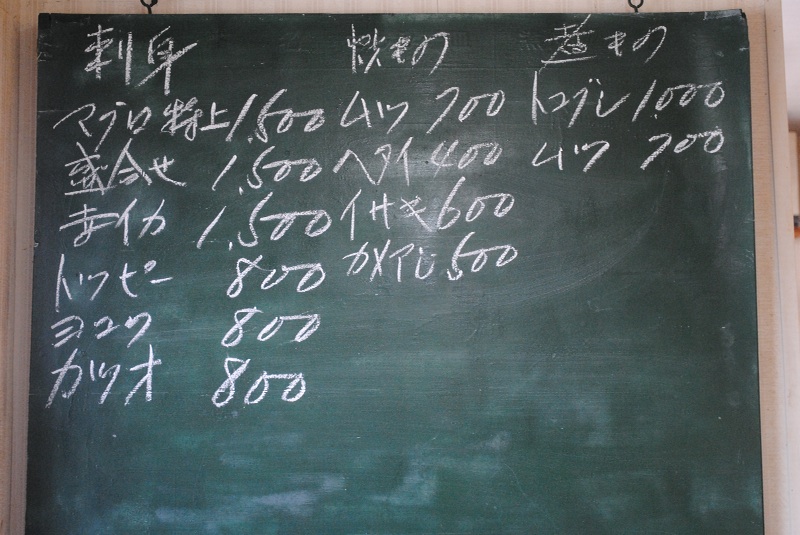 刺身
マグロ特上 1,500
盛合せ 1,500
赤イカ 1,500
トッピー 800
ヨコワ 800
カツオ 800
焼もの
ムツ 700
ヘダイ 400
イサキ 600
カメアシ 500
煮もの
トコブシ 1,000
ムツ 700